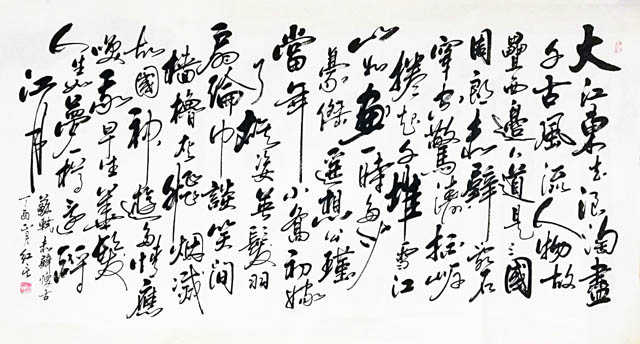 大江東去浪淘盡
千古風流人物故
壘西邊人道是三國
周郎赤壁亂石
穿空驚濤拍岸
捲起千堆雪江
山如畫一時多少
豪傑遙想公瑾
當年小喬初嫁
了雄姿英發羽
扇綸巾談笑間
檣櫓灰飛烟滅
故國神遊多情應
笑我早生華髮
人生如夢一樽還酹
江月
蘇軾赤壁懷古
丁酉